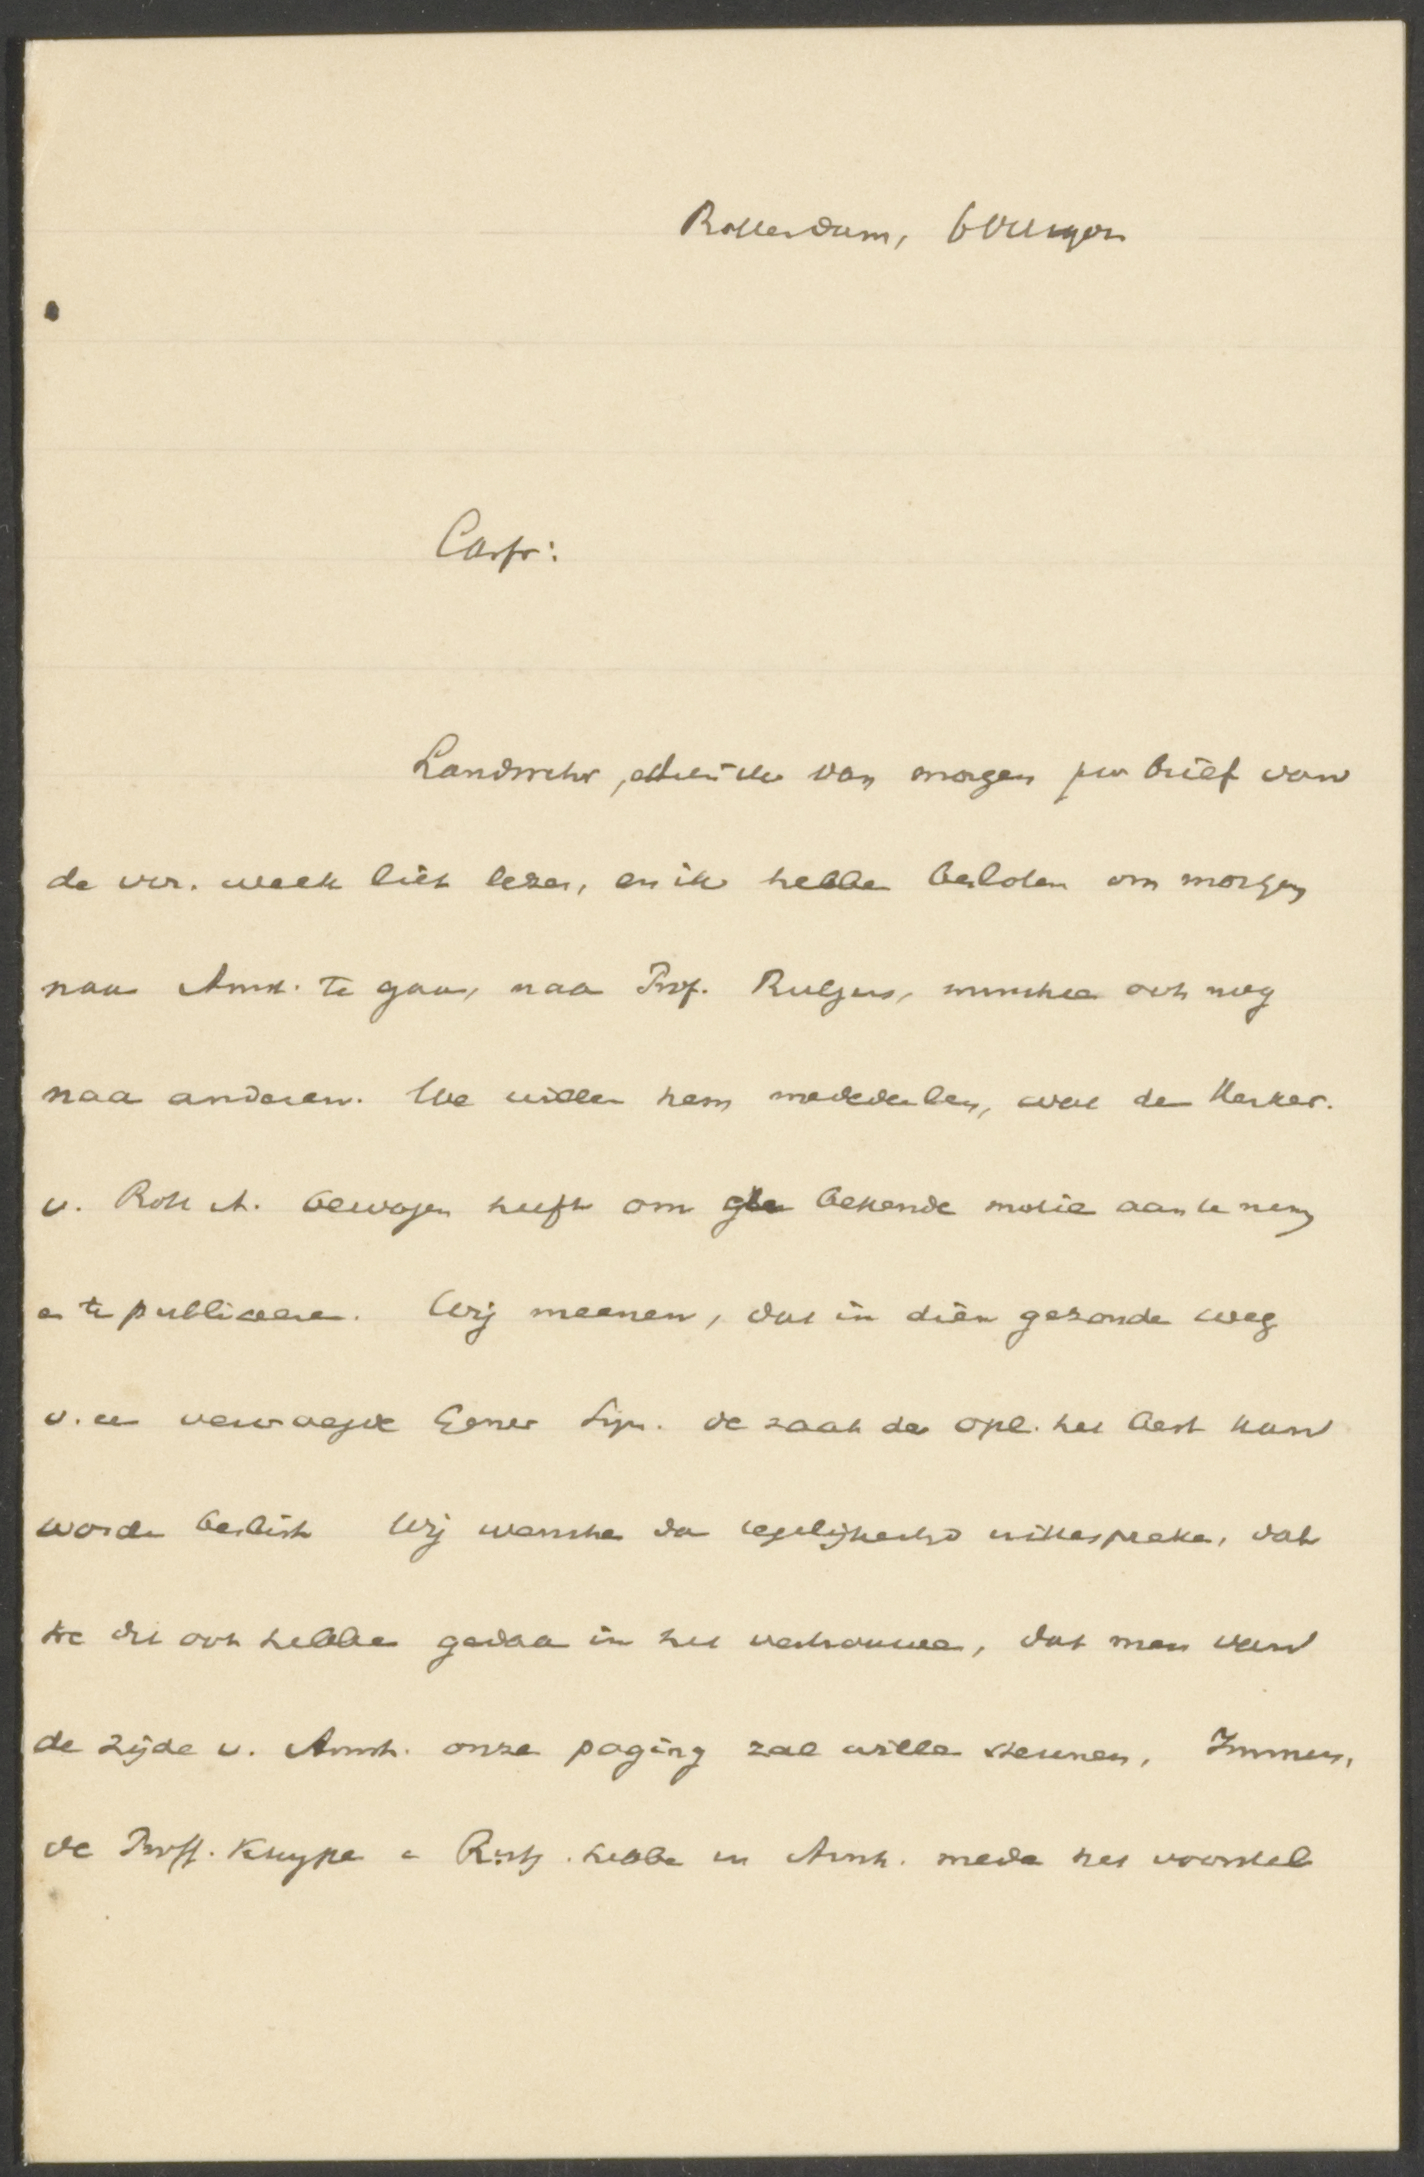 Rotterdam,
Landwehr, van morgen per brief van
de vor. week liet lezen, en ik hebben besloten om morgen
naar Amst. te gaan, naar Prof. Rutgers, misschien ook nog
naar anderen. We willen hem mededeelen, wat den Kerker.
v. Rott. A. bewogen heeft om de bekende motie aan te nemen
en te publiceeren. Wij meenen, dat in dien gezonden weg
v. een vervroegde Gener. Syn. de zaak der opl. het best kan
worden beslist Wij wenschen dan tegelijkertijd uit te spreken, dat
we dit ook hebben gedaan in het vertrouwen, dat men van
de zijde v. Amst. onze poging zal willen steunen. Immers,
de Proff. Kuyper en Rutg. hebben in Arnh. mede het voorstel